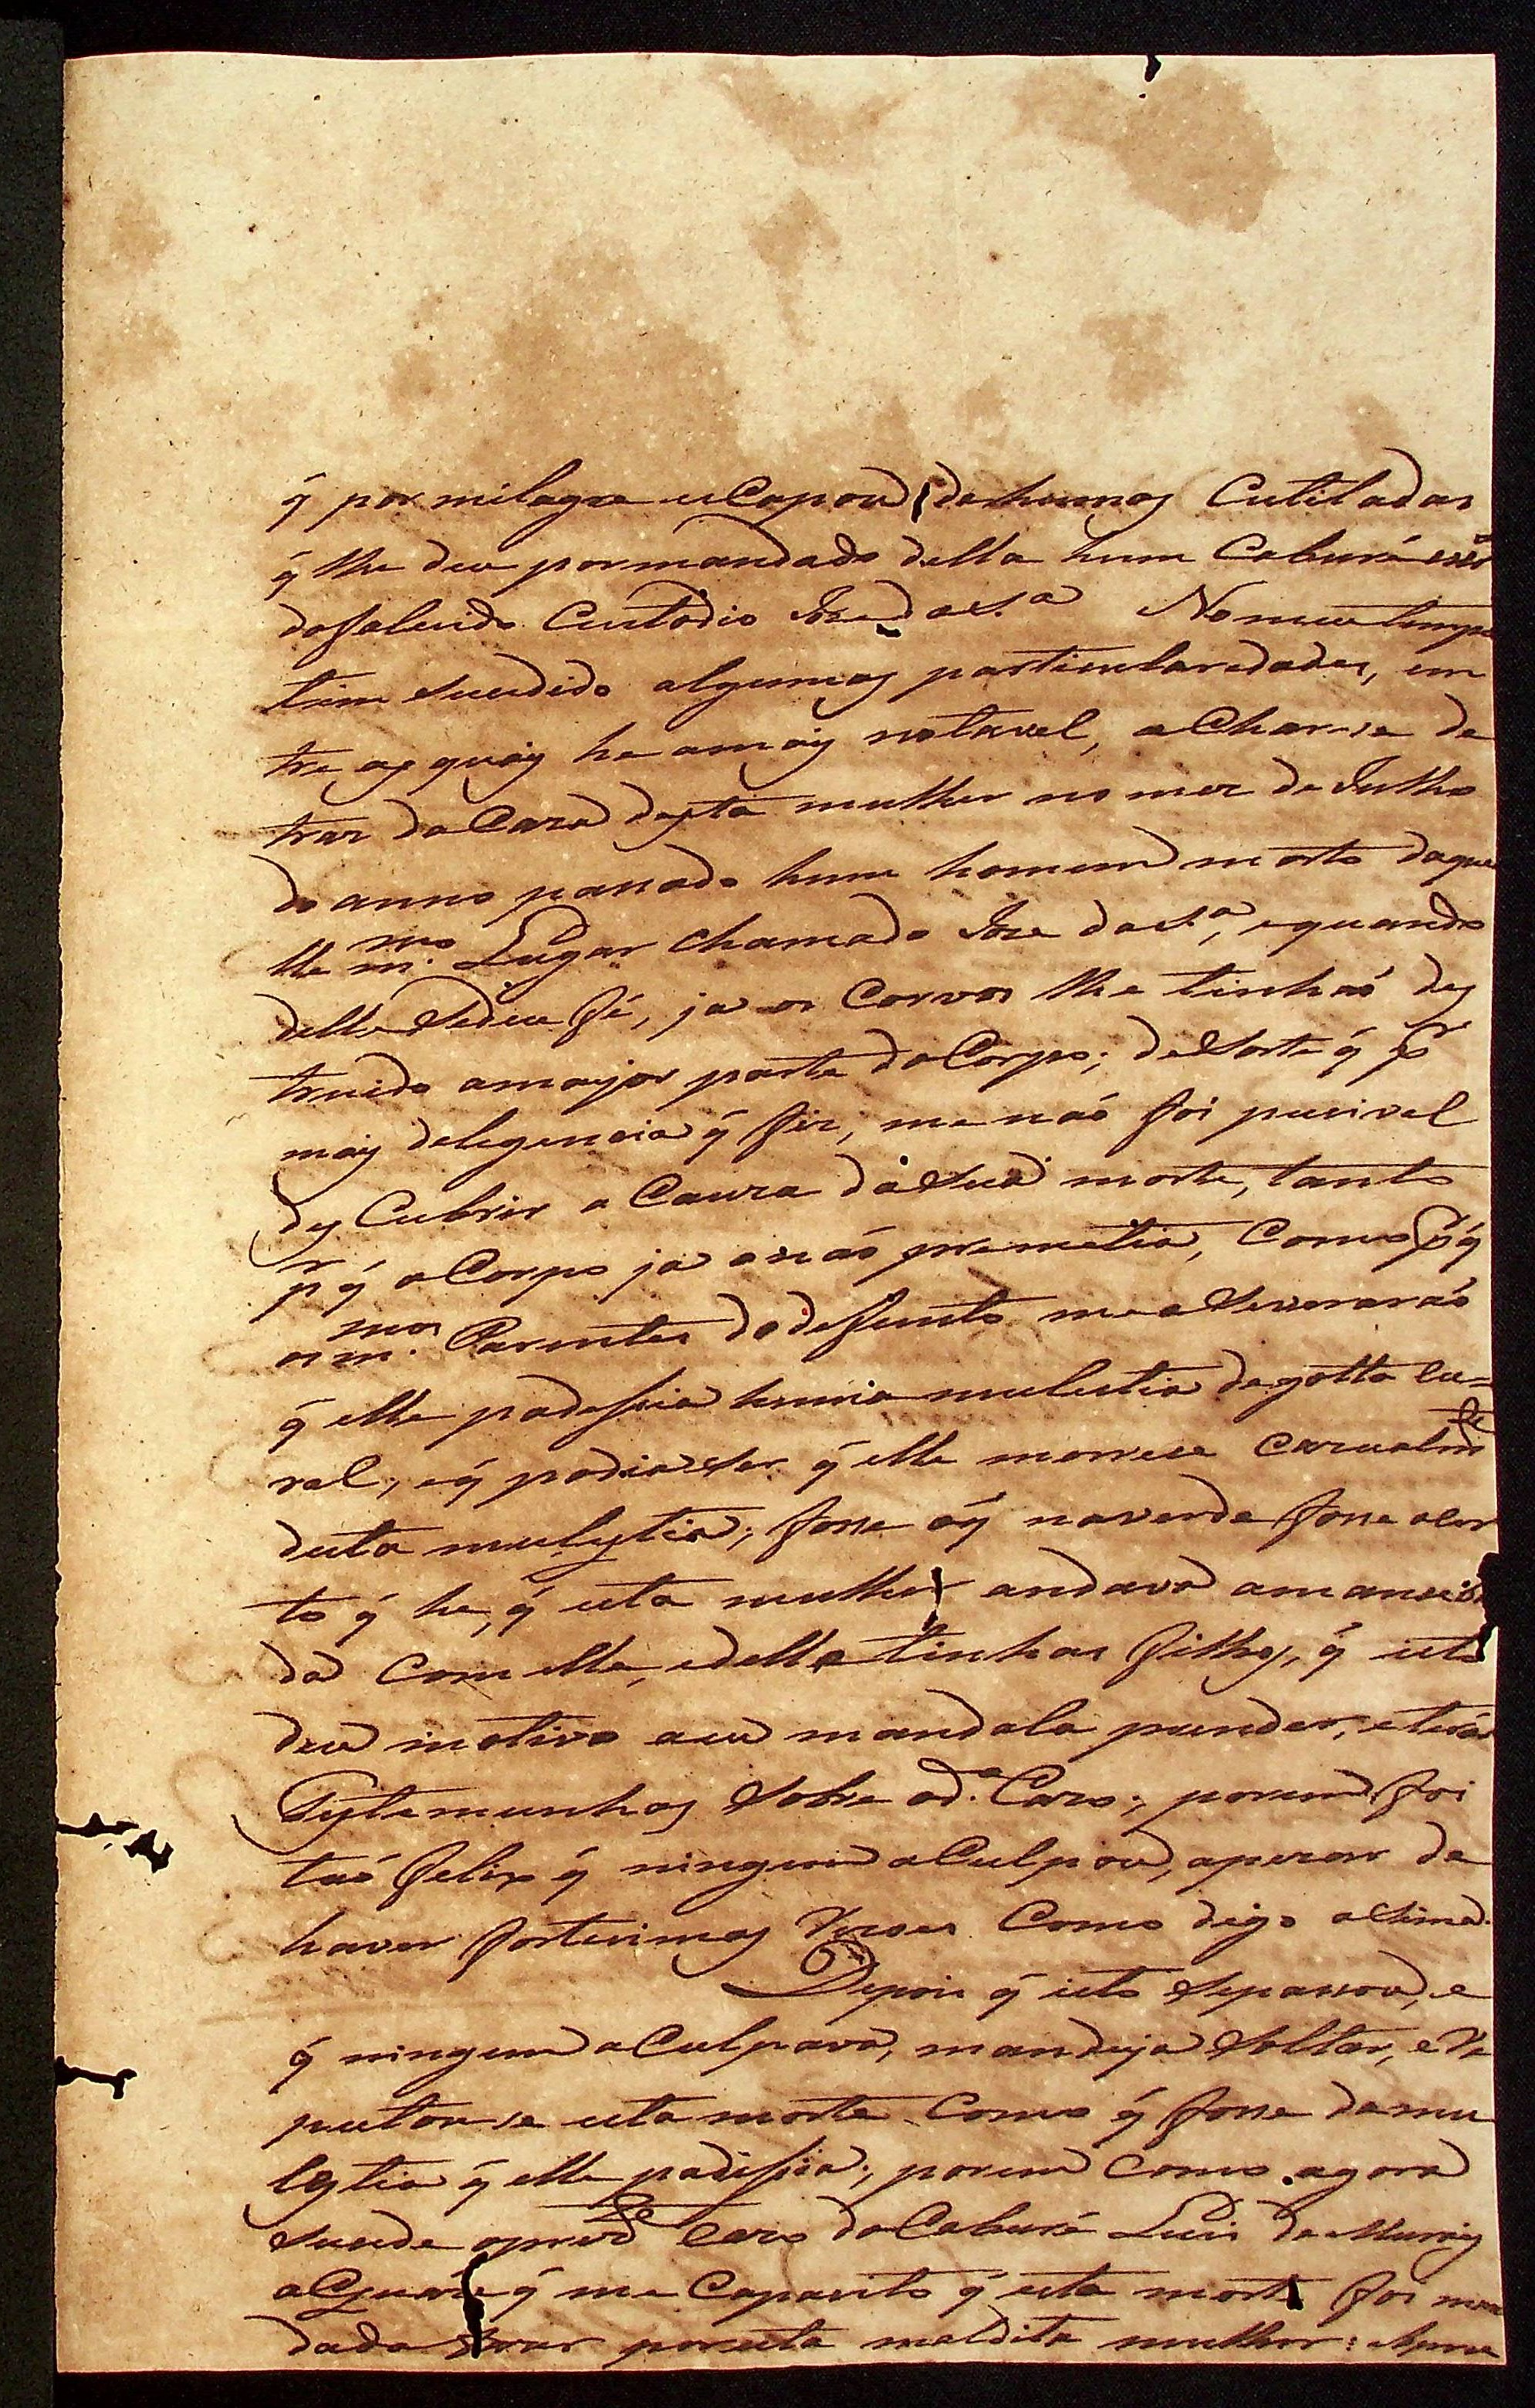 q̃ por milagre esCapou de humas Cutiladas
q̃ lhe deu por mandado della hum Caburé
do falecido Custodio Joze da S.ª No meu tempo
tem sucedido algumas particularedades, en
tre as quais he a mais notavel, aChar-se de
traz da Caza desta mulher no mez de Julho
do anno passado hum homem morto daque
lle m.mo Lugar chamado Joze da S.ª, e quando
delle Sedeu fé, ja os Corvos lhe tinhaó des
truido a mayor parte do Corpo; de Sorte q̃ p.r
mais delegencia q̃ fiz, me naó foi pucivel
desCubrir a Cauza da Sua morte, tanto
p.r q̃ o Corpo ja o naó premetia, Como p.r q̃
os m.mos Parentes do defunto me aSeveraraó
q̃ elle padessia huma mulestia de gotta Cu-
ral, e q̃ podia Ser q̃ elle morrese Cazualm.te
desta mulestia; fosse o q̃ na verde fosse o Cer
to q̃ he, q̃ esta mulher andava amanseba
da Com elle, e delle tinha filhos, q̃ isto
deu motivo a eu mandala prender, e tirár
Testemunhas Sobre o d.º Cazo; porem foi
taó felix q̃ ninguem a Culpou, apezar de
haver fortissimas Vozes Como digo aSima.
Depois q̃ isto Sepassou, e
q̃ ninguem a Culpava, mandeya Soltar, e Re
putou se esta morte Como q̃ fosse da mu
lestia q̃ elle padessia; porem Como agora
Sucede o prez.de Cazo do Caburé Luis de Morais
q̃ me Capacito q̃ esta morte foi man
dada fazer por esta maldita mulher: